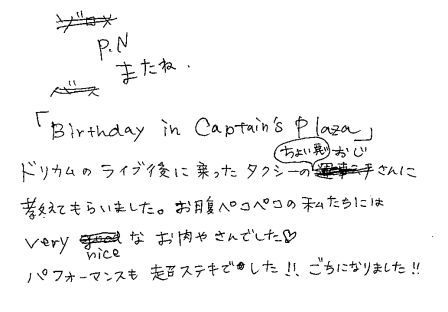 P.N
またね.
「Birthday in Captain's Plaza」
ちょい悪おじ
ドリカムのライブ後に乗ったタクシーの運転手さんに
教えてもらいました。お腹ペコペコの私たちには
very good な お肉やさんでした♡
nice
パフォーマンスも 超ステキでした!! ごちになりました!!